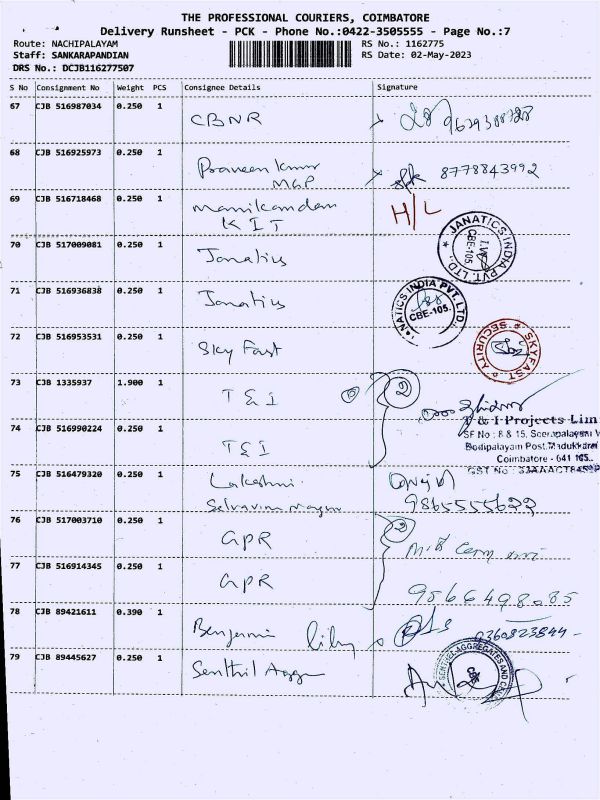 THE PROFESSIONAL COURIERS, COIMBATORE
Delivery Runsheet - PCK - Phone No.:0422-3505555 - Page No.:7
Route: NACHIPALAYAM RS No.: 1162775
Staff: SANKARAPANDIAN RS Date: 02-May-2023
DRS No.: DCJB116277507
S No Consignment No Weight PCS Consignee Details Signature
67 CJB 516987034 0.250 1 CBNR
68 CJB 516925973 0.250 1 Praveen Kumar 8778843992
MGP
69 CJB 516718468 0.250 1 Manikandan H/L
KIT
70 CJB 517009081 0.250 1 Janatics JANATICS INDIA PVT. LTD., CBE-105.
71 CJB 516936838 0.250 1 Janatics NATICS INDIA PVT. LTD. CBE-105.
72 CJB 516953531 0.250 1 Sky Fast SKYFAST SECURITY
73 CJB 1335937 1.900 1 T & I 2
T & I Projects Lim
74 CJB 516990224 0.250 1 T & I SF No : 8 & 15,
Bodipalayam Post, Madukkarai
Coimbatore - 641 105.
GST No :
75 CJB 516479320 0.250 1 Lakshmi
9865555622
76 CJB 517003710 0.250 1 GPR 2
77 CJB 516914345 0.250 1 GPR
78 CJB 89421611 0.390 1 Benjamin
79 CJB 89445627 0.250 1 Senthil Aggr SENTHIL AGGREGATES AND